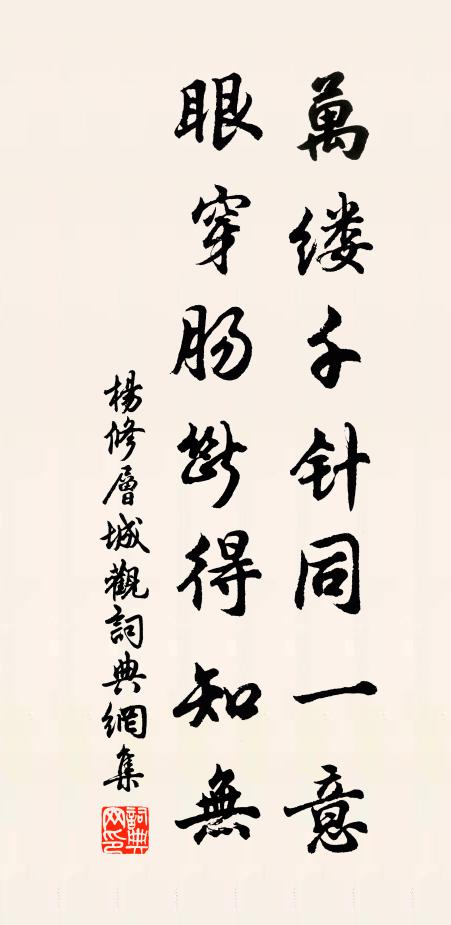 萬缕千针同一意
眼穿肠斷得知無
楊修層城觀詞典網集
詞典网印